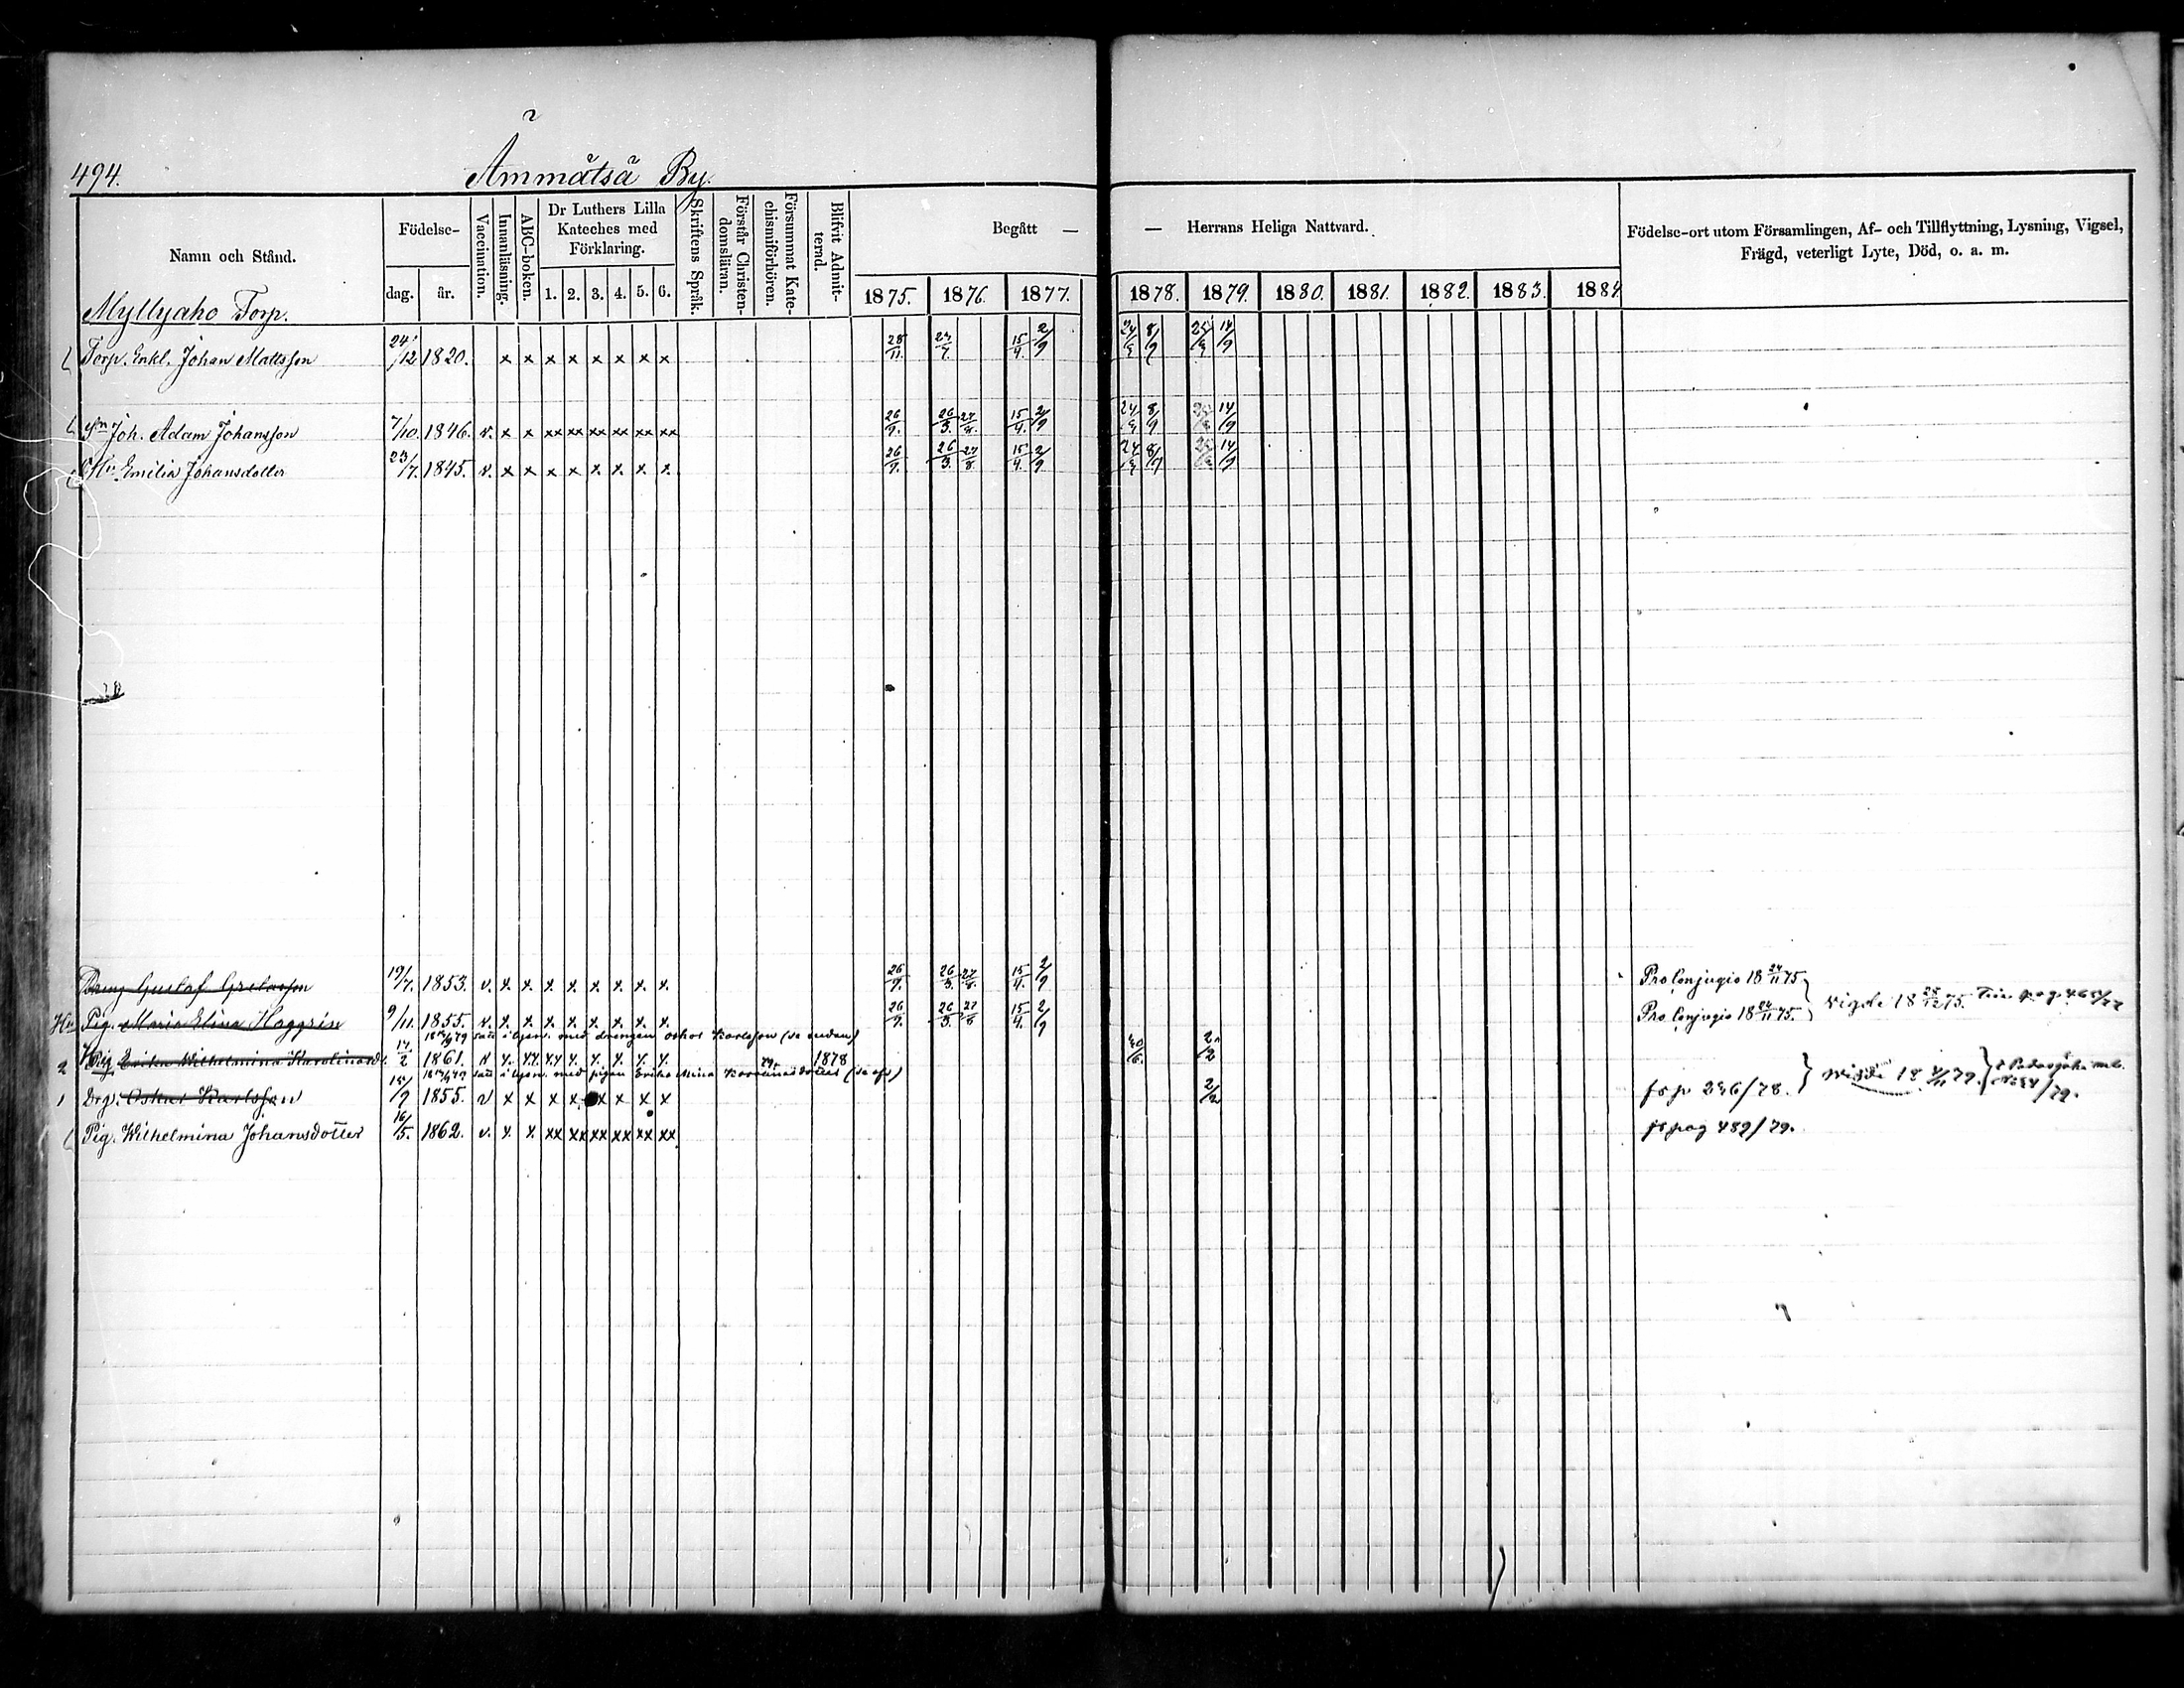 494.
Ämmätsä By.
Namn och Stånd.
Födelse-
dag.
år.
Vaccination.
Innanläsning.
ABC-boken.
Dr Luthers Lilla
Kateches med
Förklaring.
1. 2. 3. 4. 5. 6.
Skriftens Språk.
Förstår Christen-
domsläran.
Försummat Kate-
chismiförhören.
Blifvit Admit-
terad.
Begått —
— Herrans Heliga Nattvard.
1875. 1876. 1877. 1878. 1879. 1880. 1881. 1882. 1883. 1884.
Födelse-ort utom Församlingen, Af- och Tillflyttning, Lysning, Vigsel,
Frägd, veterligt Lyte, Död, o. a. m.
Myllyaho Torp.
Torp. Enkl. Johan Mattsson 24/12 1820. x x x x x x x x 28/11. 15/4. 2/9 8/9 14/9
Sn Joh. Adam Johansson 7/10. 1846. v. x x xx xx xx xx xx xx 26/9. 26/3. 27/8. 15/4. 2/9 8/9 14/9
Hu. Emilia Johansdotter 23/7. 1845. v. x x x x x x x x 26/9. 26/3. 27/8 15/4. 2/9 8/9 14/9
Dreng Gustaf Gustafsson 19/7. 1853. v. x. x. x. x. x. x. x. x. 26/9. 26/3. 27/8. 15/4. 2/9 Pro Conjugio 18 24/11 75
Hu Pig. Maria Elina Haggrén 9/11. 1855. v. x. x. x. x. x. x. x. x. 26/9. 26/3. 27/8 15/4. 2/9 Pro Conjugio 18 24/11 75. vigde 18 28/12 75.
i lysn. med drengen Oskar Karlsson (se nedan)
2 Pig. Erika Wilhelmina Karolinasd. 14/2 1861. v x. xx. xx x. x. x. x. x. 1878
i lysn. med pigan Erika Mina Karolinasdotter (se of.)
1 Drg. Oskar Karlsson 15/9 1855. v x x x x x x x x 2/2 fr p 236/78. vigde
Pig. Wilhelmina Johansdotter 16/5. 1862. v. x. x. xx xx xx xx xx xx. fr pag 489/79.